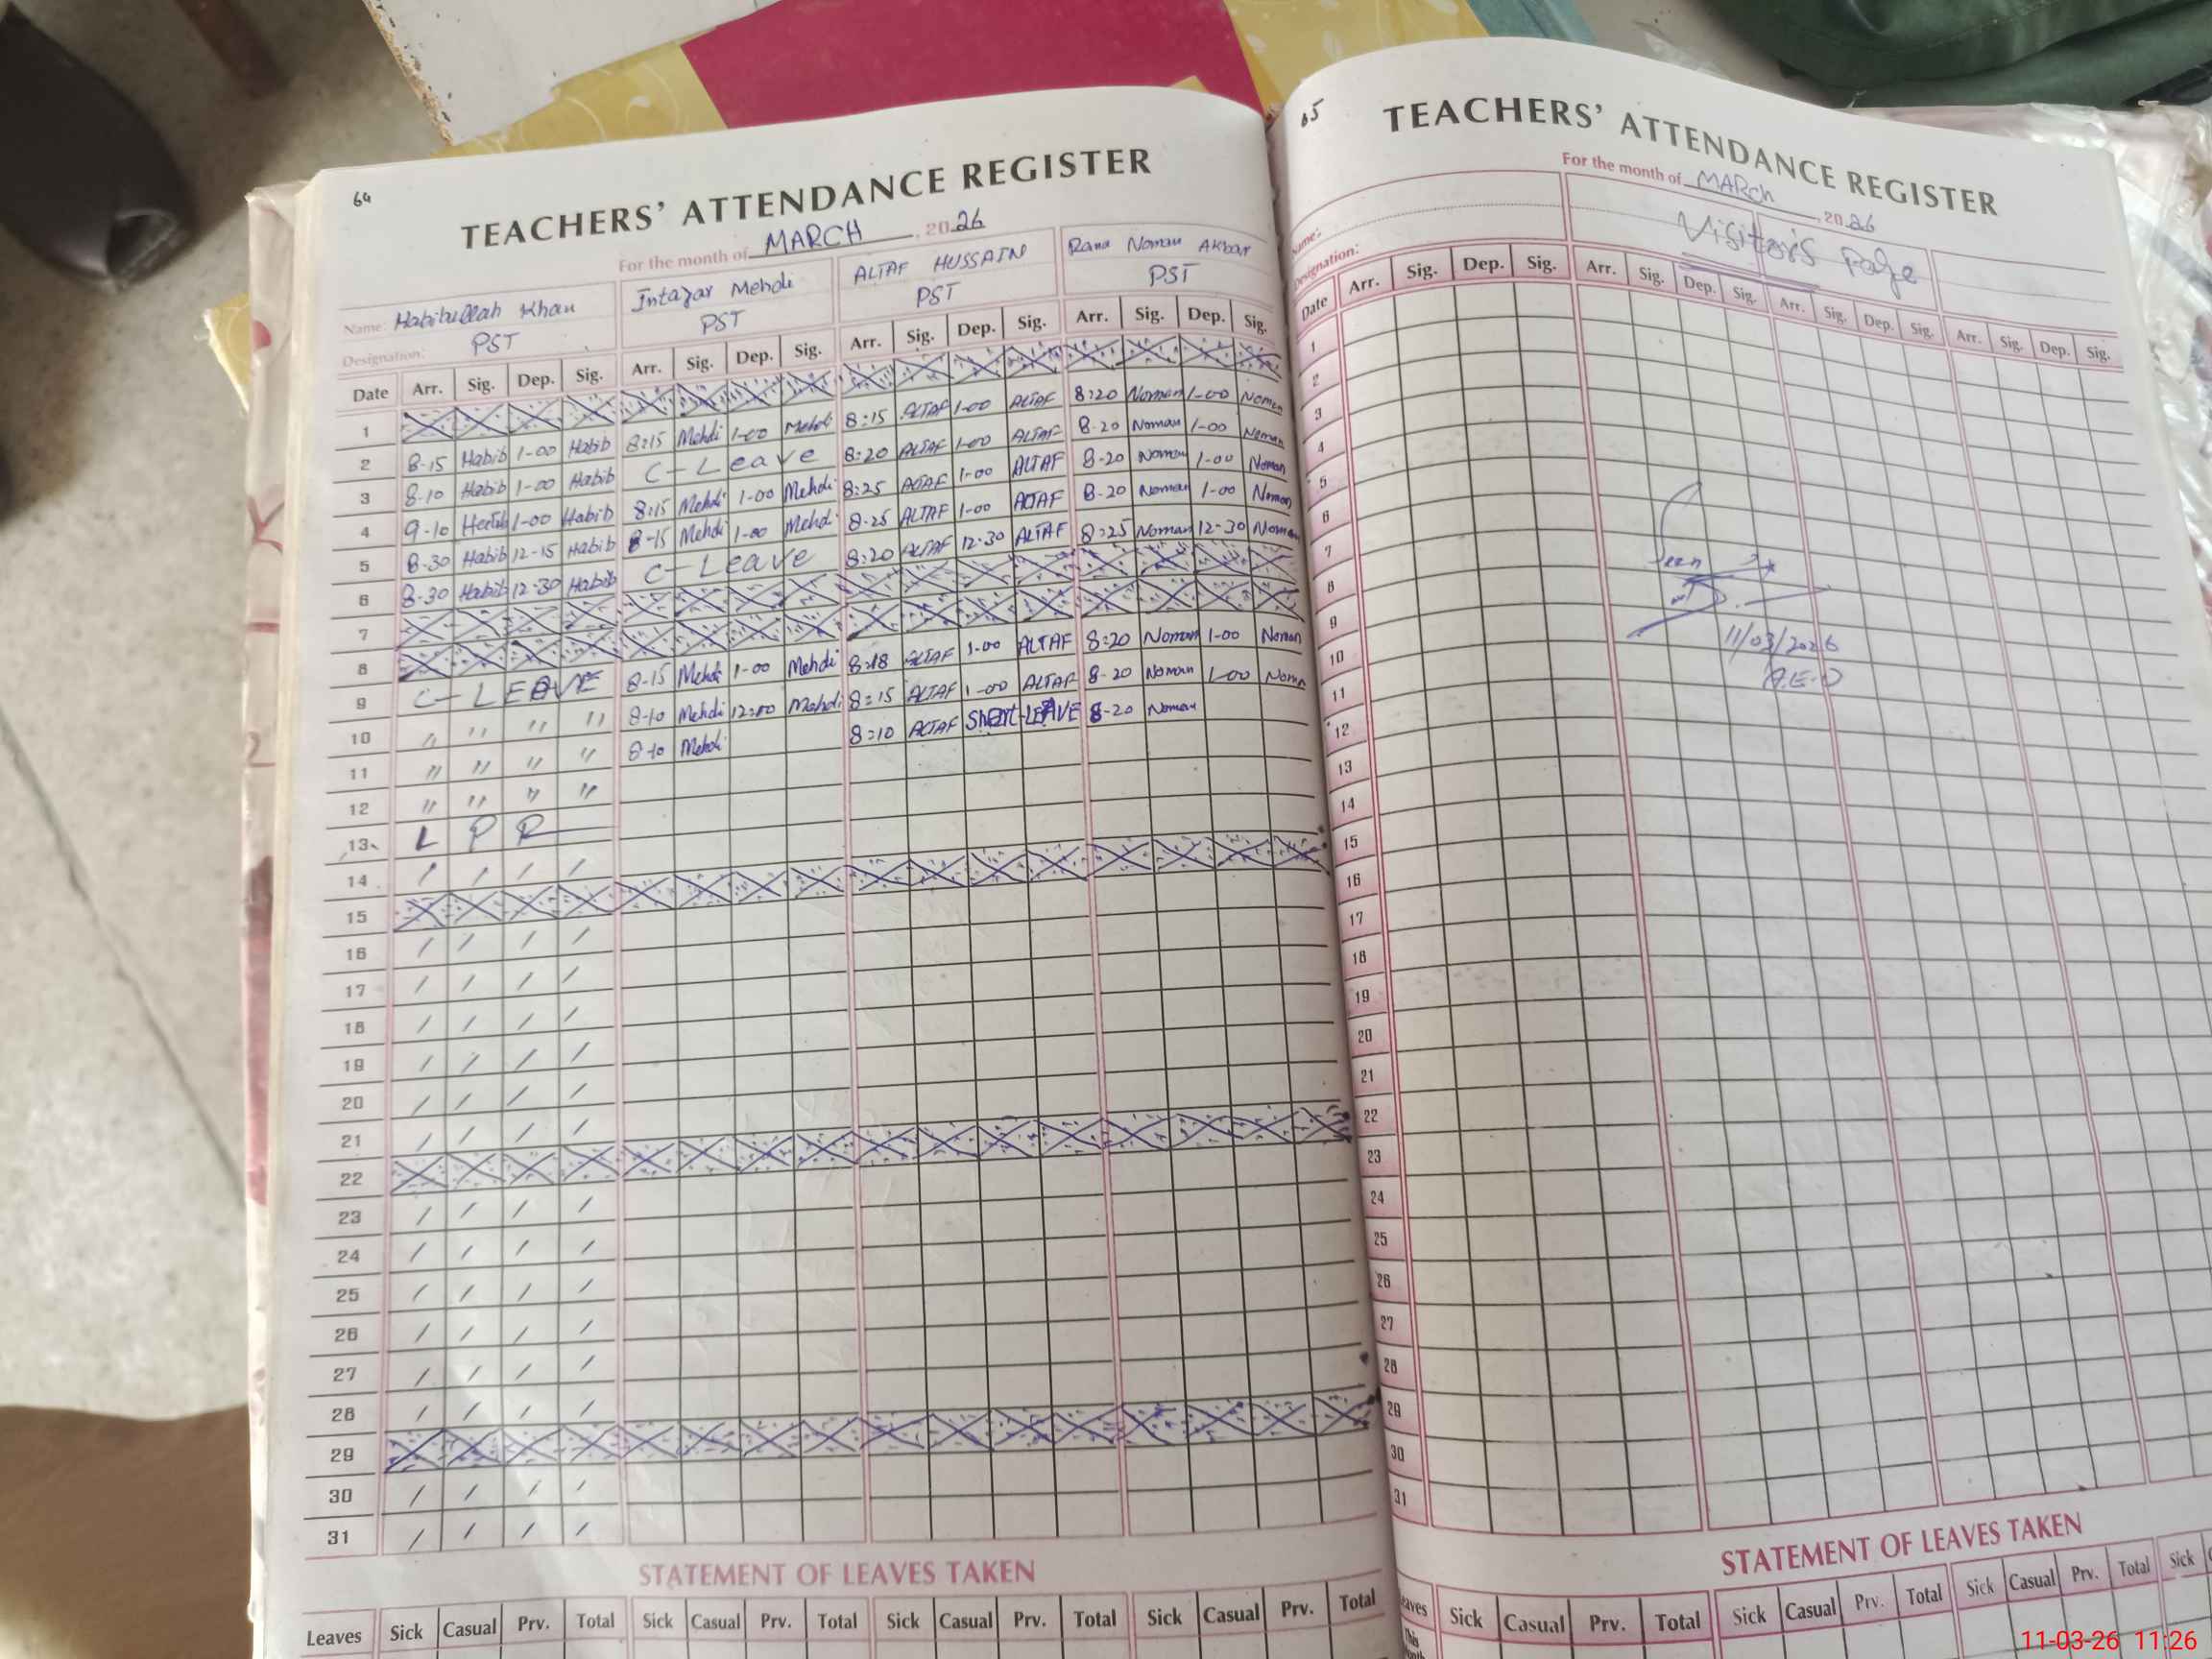 64
TEACHERS' ATTENDANCE REGISTER
For the month of MARCH 2026
Name: Habibullah Khan Intazar Mehdi ALTAF HUSSAIN Rana Noman Akbar
Designation: PST PST PST PST
Date Arr. Sig. Dep. Sig. Arr. Sig. Dep. Sig. Arr. Sig. Dep. Sig. Arr. Sig. Dep. Sig.
1
2 8-15 Habib 1-00 Habib 8:15 Mehdi 1-00 Mehdi 8:15 ALTAF 1-00 ALTAF 8:20 Noman 1-00 Noman
3 8-10 Habib 1-00 Habib C-Leave 8:20 ALTAF 1-00 ALTAF 8-20 Noman 1-00 Noman
4 9-10 1-00 Habib 8:15 Mehdi 1-00 Mehdi 8:25 ALTAF 1-00 ALTAF 8-20 Noman 1-00 Noman
5 8-30 Habib 12-15 Habib 8-15 Mehdi 1-00 Mehdi 8-25 ALTAF 1-00 ALTAF 8-20 Noman 1-00 Noman
6 8-30 Habib 12-30 Habib C-Leave 8:20 ALTAF 12-30 ALTAF 8:25 Noman 12-30 Noman
7
8
9 C-LEAVE 8-15 Mehdi 1-00 Mehdi 8:18 ALTAF 1-00 ALTAF 8:20 Noman 1-00 Noman
10 " " " " 8-10 Mehdi 12:00 Mehdi 8:15 ALTAF 1-00 ALTAF 8-20 Noman 1-00 Noman
11 " " " " 8-10 Mehdi 8:10 ALTAF Short-LEAVE 8-20 Noman
12 " " " "
13 L P R
14 / / / /
15
16 / / / /
17 / / / /
18 / / / /
19 / / / /
20 / / / /
21 / / / /
22
23 / / / /
24 / / / /
25 / / / /
26 / / / /
27 / / / /
28 / / / /
29
30 / / / /
31 / / / /
STATEMENT OF LEAVES TAKEN
Leaves Sick Casual Prv. Total Sick Casual Prv. Total Sick Casual Prv. Total Sick Casual Prv. Total
65
TEACHERS' ATTENDANCE REGISTER
For the month of MARCH 2026
Name:
Visitor's Page
Designation:
Date Arr. Sig. Dep. Sig. Arr. Sig. Dep. Sig. Arr. Sig. Dep. Sig. Arr. Sig. Dep. Sig.
1
2
3
4
5
6
7
Seen
8
9
11/03/2026
10
A.E.O
11
12
13
14
15
16
17
18
19
20
21
22
23
24
25
26
27
28
29
30
31
STATEMENT OF LEAVES TAKEN
Leaves Sick Casual Prv. Total Sick Casual Prv. Total Sick Casual Prv. Total Sick
This
11-03-26 11:26